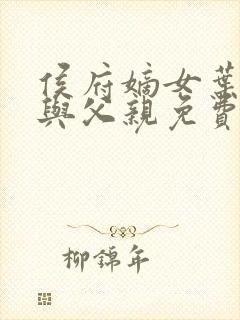 侯府嫡女葉
與父親免費
柳錦年